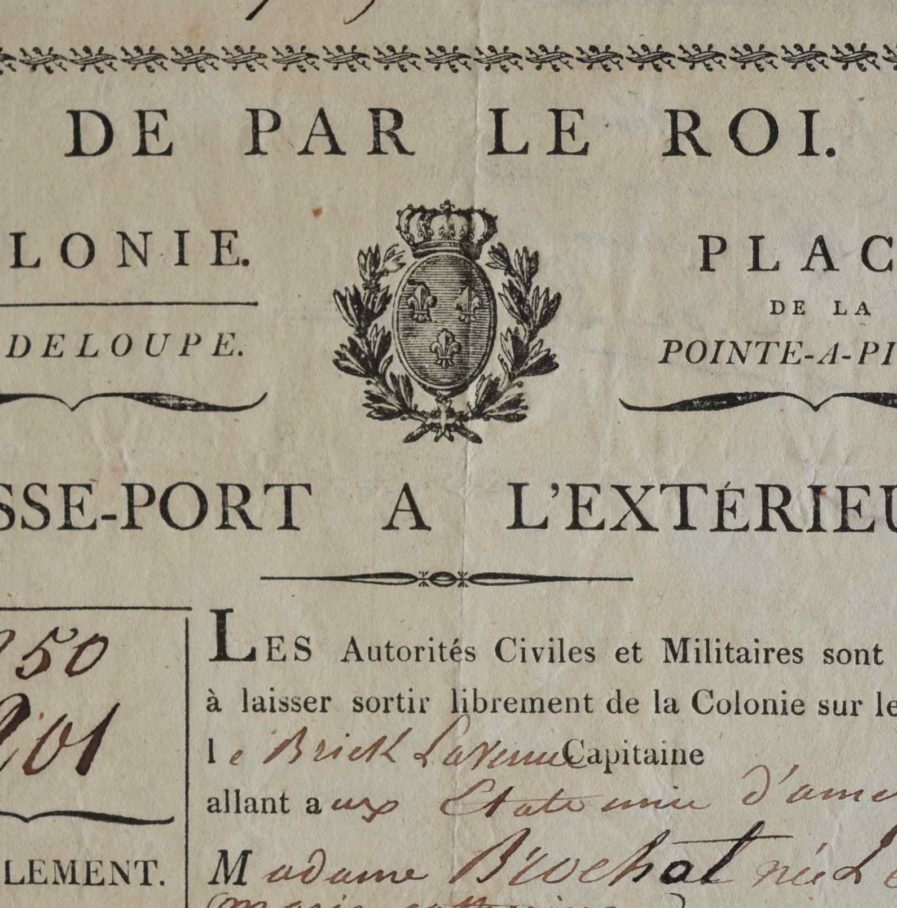 DE PAR LE ROI.
LONIE.
PLAC
DE LA
DELOUPE.
POINTE-A-PI
SSE-PORT A L'EXTÉRIEU
50
201
LES Autorités Civiles et Militaires sont
à laisser sortir librement de la Colonie sur le
le Brick Capitaine
allant aux Etats unie d'ame
LEMENT.
Madame Brochat née Le